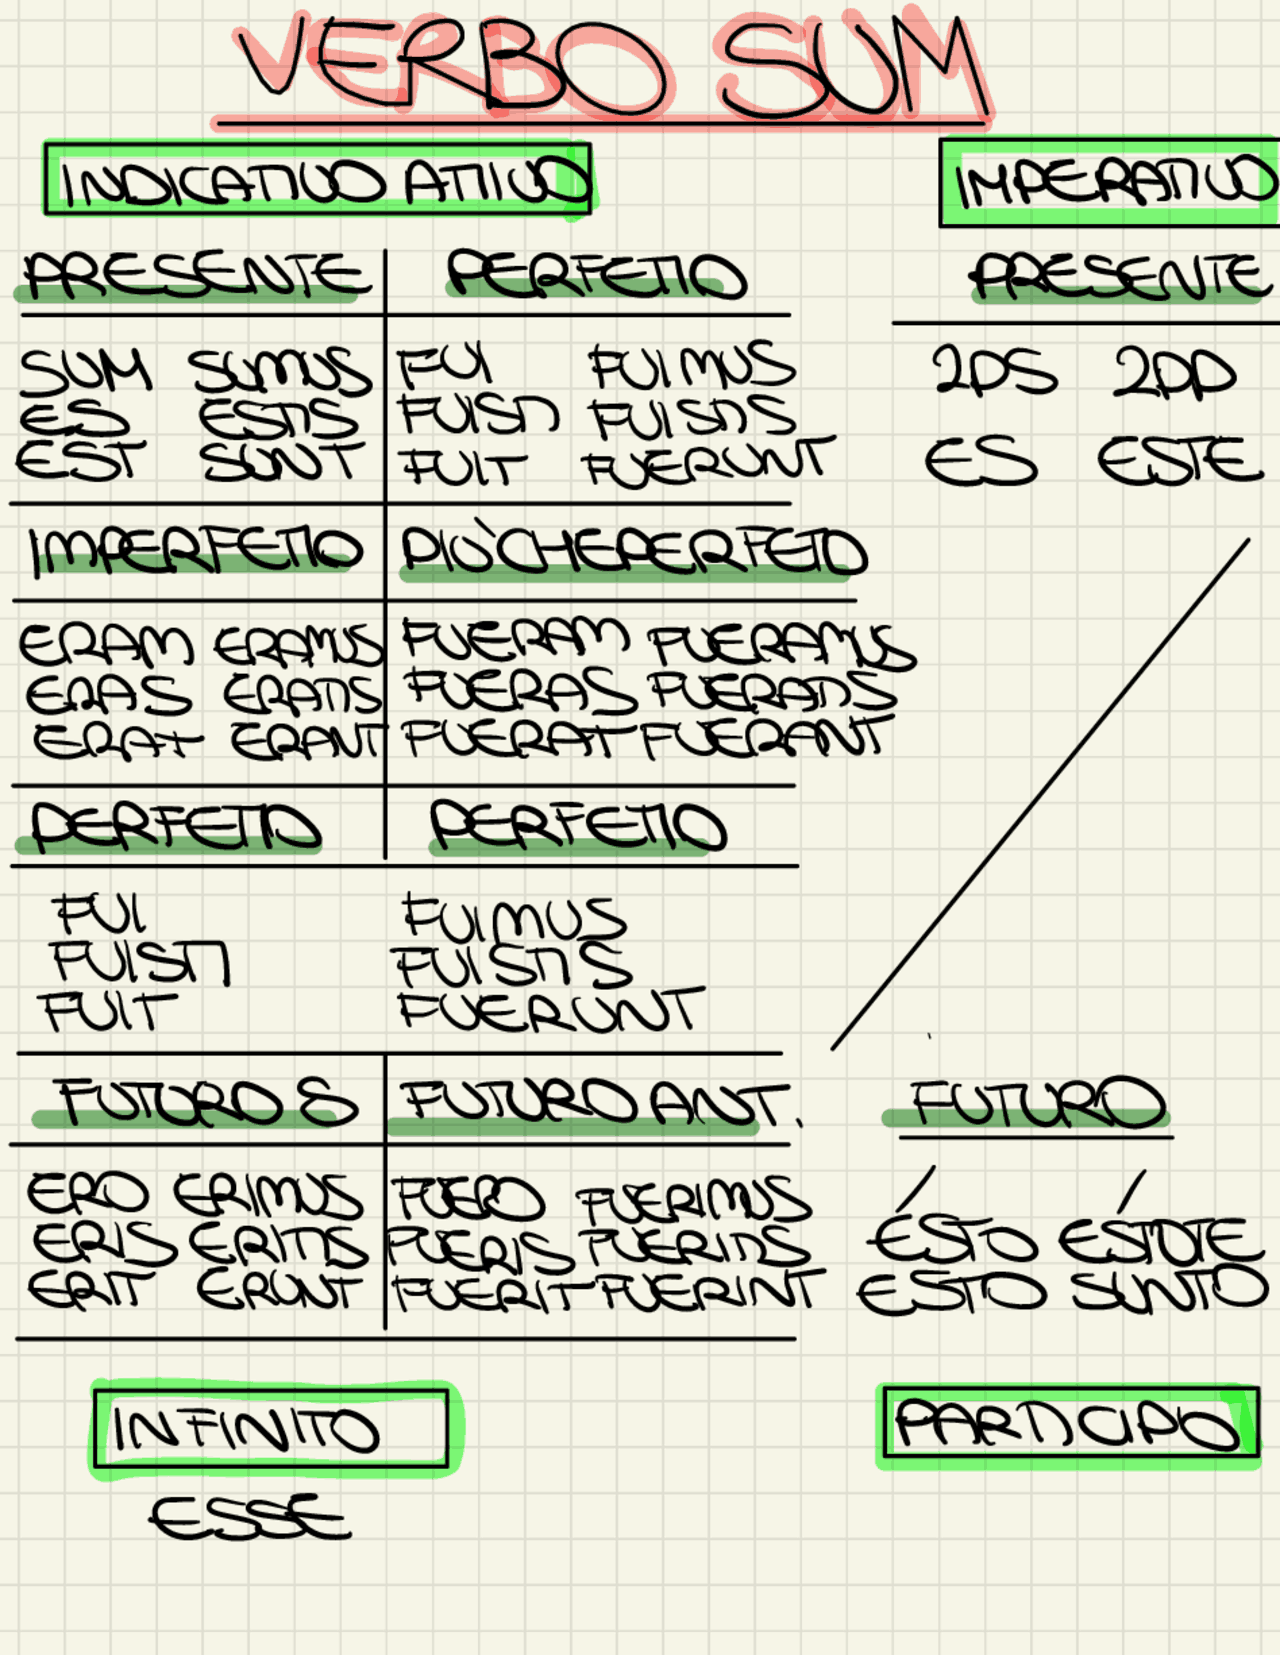 VERBO SUM
INDICATIVO ATTIVO IMPERATIVO
PRESENTE PERFETTO PRESENTE
SUM SUMUS FUI FUIMUS 2PS 2PP
ES ESTIS FUISTI FUISTIS
EST SUNT FUIT FUERUNT ES ESTE
IMPERFETTO PIÙCHEPERFETTO
ERAM ERAMUS FUERAM FUERAMUS
ERAS ERATIS FUERAS FUERATIS
ERAT ERANT FUERAT FUERANT
PERFETTO PERFETTO
FUI FUIMUS
FUISTI FUISTIS
FUIT FUERUNT
FUTURO S FUTURO ANT. FUTURO
ERO ERIMUS FUERO FUERIMUS / /
ERIS ERITIS FUERIS FUERITIS ESTO ESTOTE
ERIT ERUNT FUERIT FUERINT ESTO SUNTO
INFINITO PARTICIPIO
ESSE